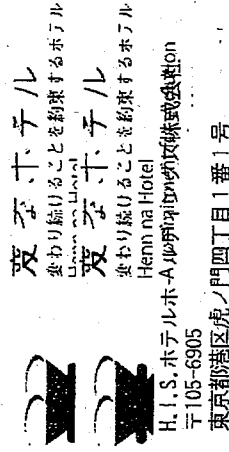 変なホテル
変わり続けることを約束するホテル
変なホテル
変わり続けることを約束するホテル
Henn na Hotel
H.I.S.ホテルホ
〒105-6905
東京都港区虎ノ門四丁目1番1号